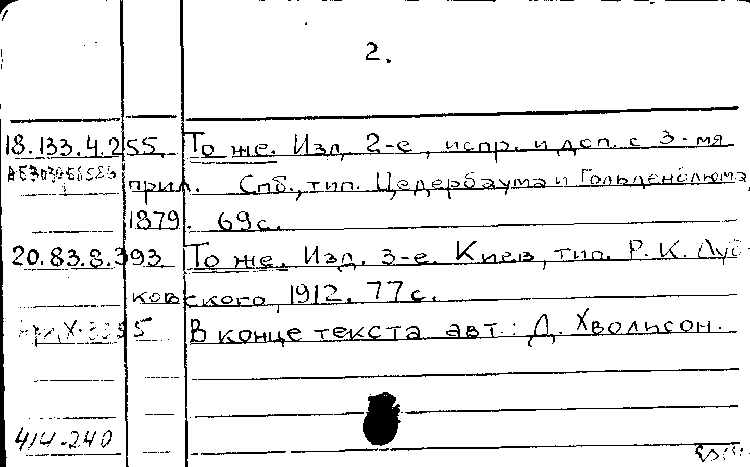 2.
18.133.4.255. То же. Изд. 2-е, испр. и доп. с 3-мя
прил. Спб., тип. Цедербаума и Гольденблюма,
1879. 69 с.
20.83.8.393 То же. Изд. 3-е. Киев, тип. Р. К. Луб-
ковского, 1912. 77 с.
В конце текста авт.: Д. Хвольсон.
414-240